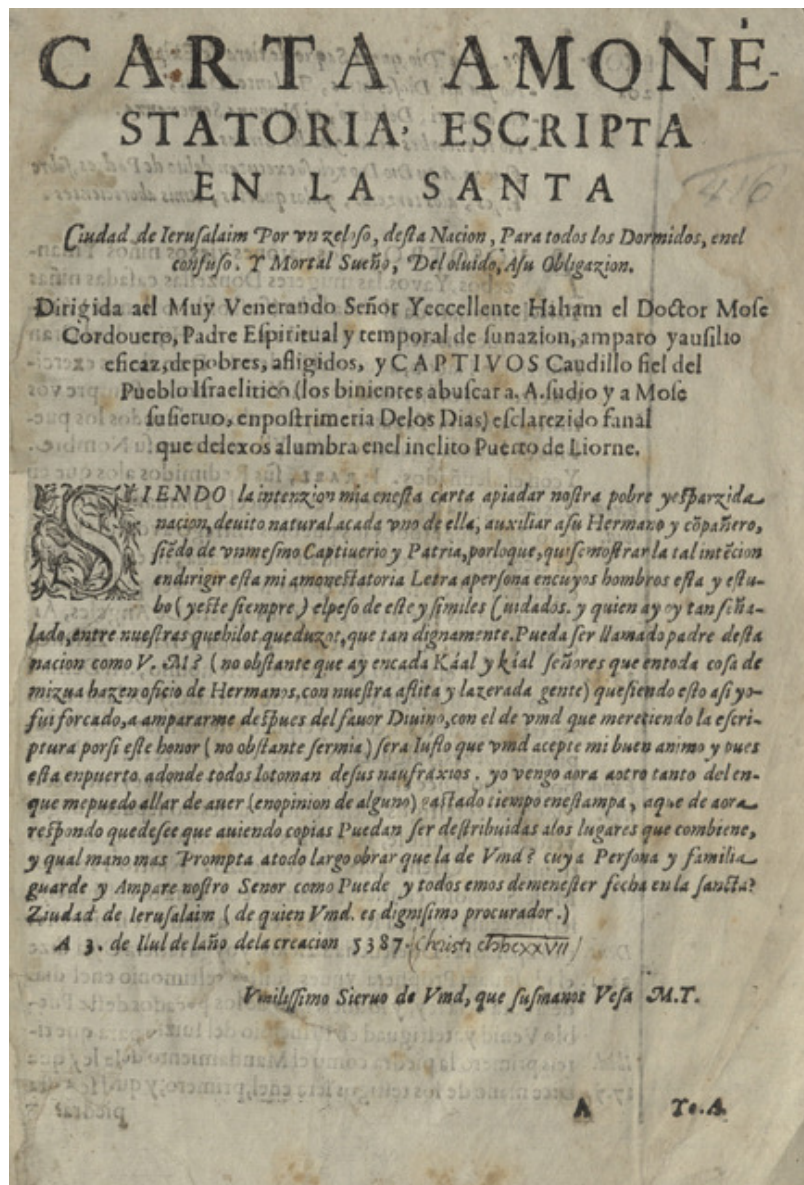 CARTA AMONE-
STATORIA, ESCRIPTA
EN LA SANTA
416
Ciudad de Ierusalaim Por vn zeloso, desta Nacion, Para todos los Dormidos, enel
confuso. Y Mortal Sueño, Del oluido, Asu Obligazion.
Dirigida ael Muy Venerando Señor Yeccellente Haham el Doctor Mose
Cordouero, Padre Espiritual y temporal de sunazion, amparo yausilio
eficaz, depobres, afligidos, y CAPTIVOS Caudillo fiel del
Pueblo Israelitico (los binientes abuscar a. A. sudio y a Mose
susieruo, enpostrimeria Delos Dias) esclarezido fanal
que delexos alumbra enel inclito Puerto de Liorne.
SIENDO la intenzion mia enesta carta apiadar nostra pobre yesparzida
nacion, deuito natural acada vno de ella, auxiliar asu Hermano y cõpañero,
siẽdo de vnmesmo Captiuerio y Patria, porloque, quisemostrar la tal intẽcion
endirigir esta mi amonestatoria Letra apersona encuyos hombros esta y estu-
bo (yeste siempre) elpeso de este y similes Cuidados. y quien ay oy tan seña-
lado, entre nuestras quehilot. queduzot, que tan dignamente. Pueda ser llamado padre desta
nacion como V. M? (no obstante que ay encada Káal y káal señores que entoda cosa de
mizua hazen oficio de Hermanos, con nuestra aflita y lazerada gente) quesiendo esto asi yo
fui forcado, a ampararme despues del fauor Diuino, con el de vmd que mereciendo la escri-
ptura porsi este honor (no obstante sermia) sera Iusto que vmd acepte mi buen animo y pues
esta enpuerto. adonde todos lotoman desus naufraxios. yo vengo aora aotro tanto del en-
que mepuedo allar de auer (enopinion de alguno) gastado tiempo enestampa, aque de aora
respondo quedesee que auiendo copias Puedan ser destribuidas alos lugares que combiene,
y qual mano mas Prompta atodo largo obrar que la de Vmd? cuya Persona y familia
guarde y Ampare nostro Senor como Puede y todos emos demenester fecha en la sancta?
Ziudad de Ierusalaim (de quien Vmd. es dignisimo procurador.)
A 3. de Ilul de laño dela creacion 5387.
Vmilissimo Sieruo de Vmd, que susmanos Vesa M.T.
A To.A.